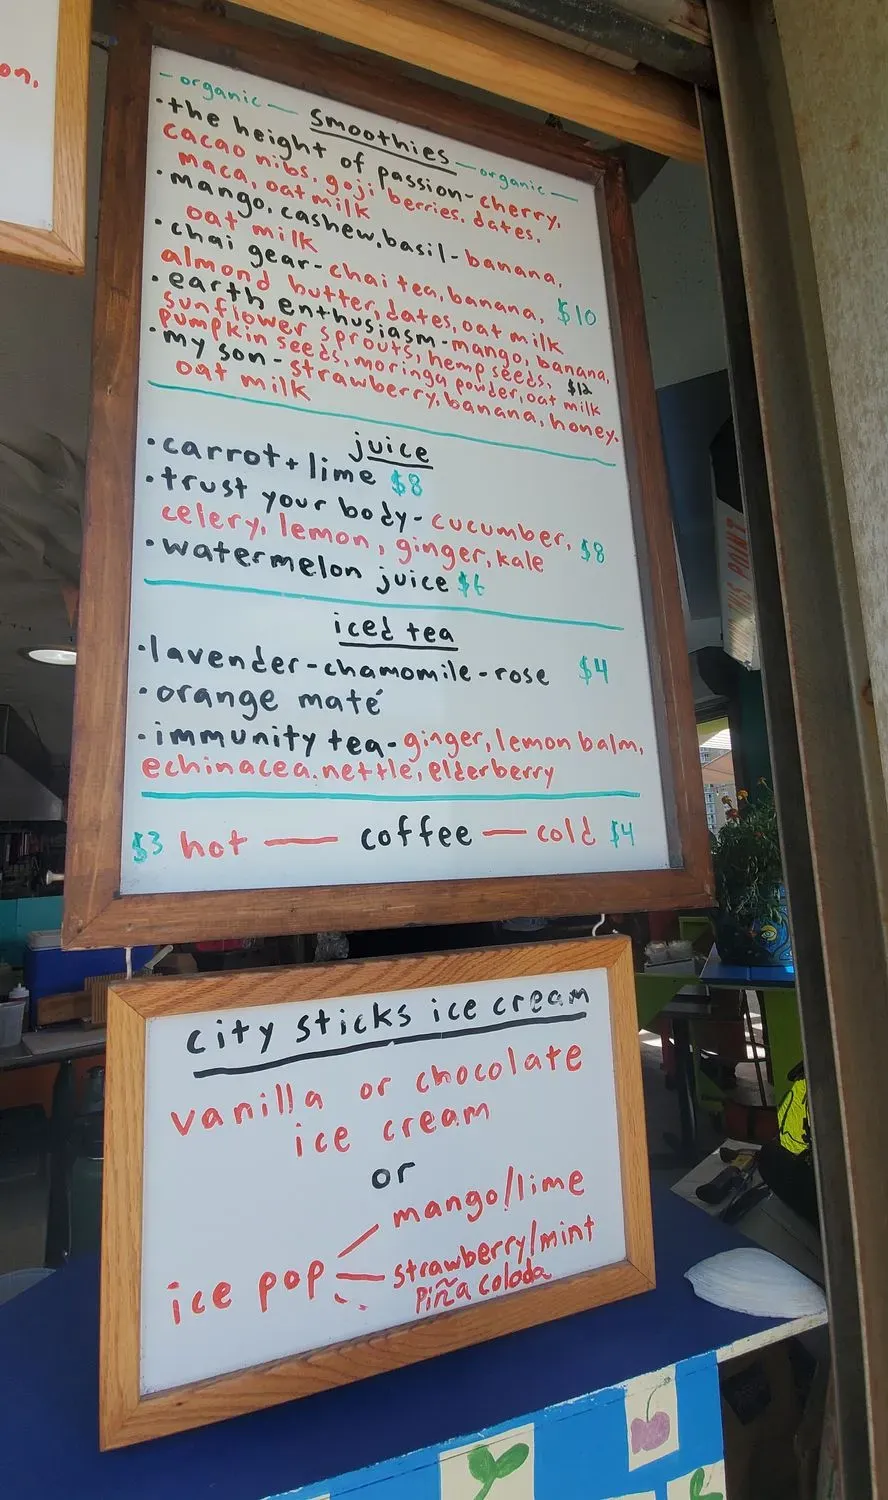 on,
- organic - smoothies - organic -
• the height of passion - cherry,
cacao nibs, goji berries, dates,
maca, oat milk
• mango, cashew, basil - banana,
oat milk
• chai gear - chai tea, banana, $10
almond butter, dates, oat milk
• earth enthusiasm - mango, banana,
sunflower sprouts, hemp seeds, $12
pumpkin seeds, moringa powder, oat milk
• my son - strawberry, banana, honey,
oat milk
juice
• carrot + lime $8
• trust your body - cucumber, $8
celery, lemon, ginger, kale
• watermelon juice $6
iced tea
• lavender - chamomile - rose $4
• orange maté
• immunity tea - ginger, lemon balm,
echinacea, nettle, elderberry
$3 hot — coffee — cold $4
city sticks ice cream
vanilla or chocolate
ice cream
or
mango/lime
ice pop strawberry/mint
Piña colada
THIS POINT